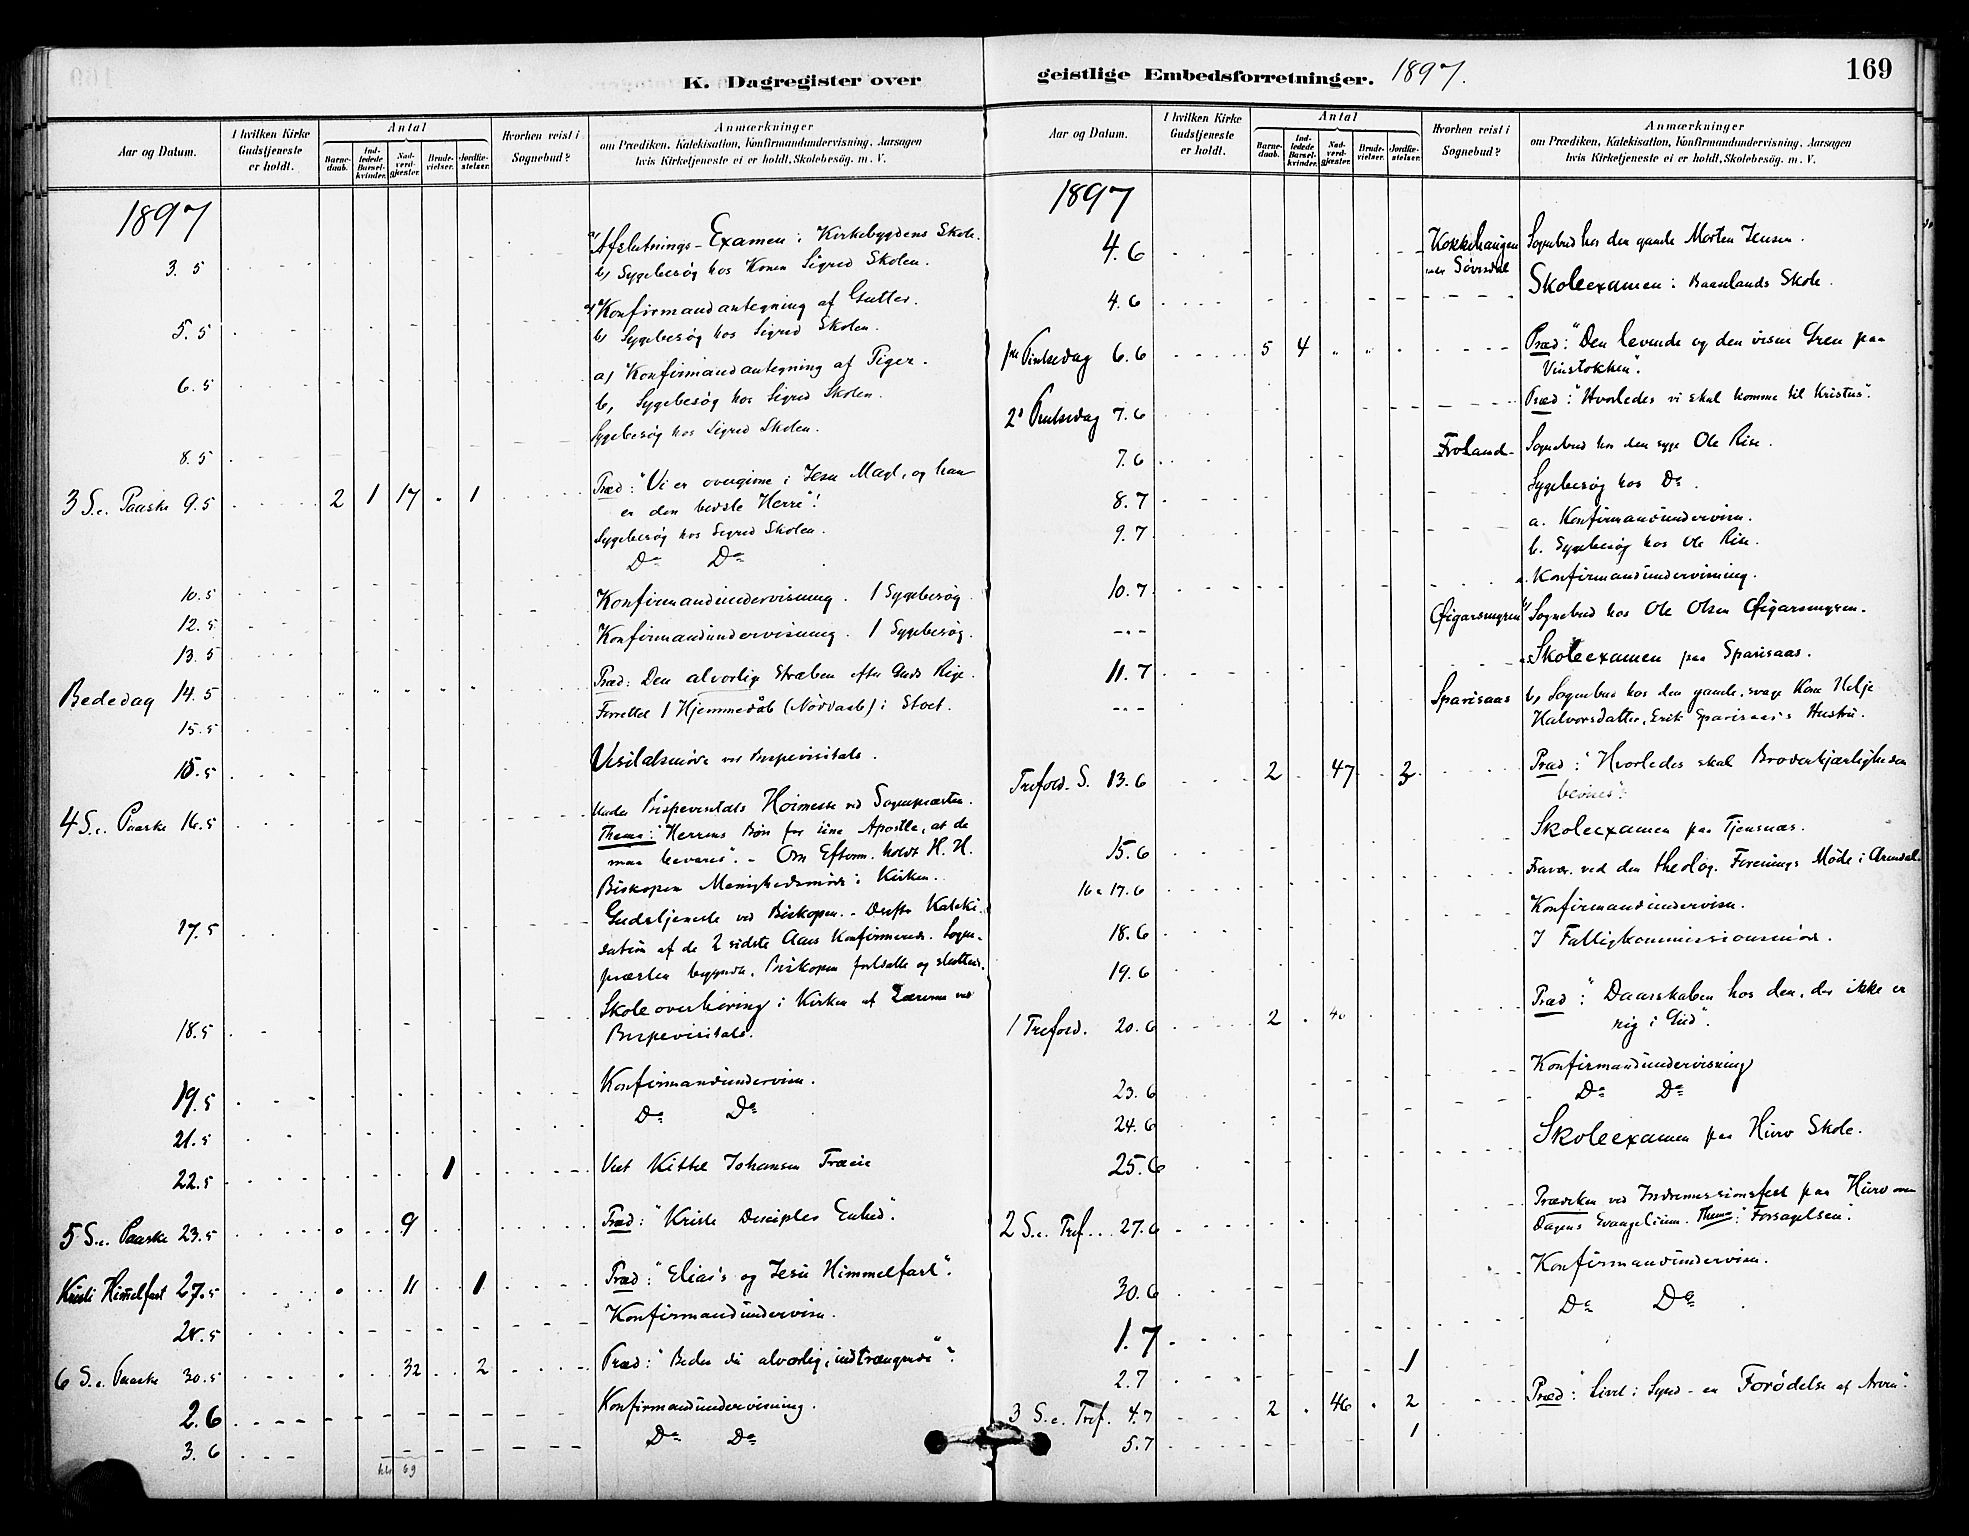 K. Dagregister over
Aar og Datum.
I hvilken Kirke Gudstjeneste er holdt.
Antal
Barne-daab.
Ind-ledede Barsel-kvinder.
Nad-verd-gjester.
Brude-vielser.
Jordfæ-stelser.
Hvorhen reist i Sognebud?
Anmærkninger
om Prædiken, Katekisation, Konfirmandundervisning, Aarsagen
hvis Kirketjeneste ei er holdt, Skolebesög. m. V.
1897
3.5 a) Afslutnings-Examen i Kirkebygdens Skole.
b) Sygebesøg hos Konen Sigrid Skolen.
5.5 a) Konfirmandantegning af Gutter.
b) Sygebesøg hos Sigrid Skolen.
6.5 a) Konfirmandantegning af Piger.
b, Sygebesøg hos Sigrid Skolen.
8.5 Sygebesøg hos Sigrid Skolen.
3 S. e. Paaske 9.5 2 1 17 1 Præd: "Vi er overgivne i Jesu Magt, og han
er den bedste Herre"!
Sygebesøg hos Sigrid Skolen.
10.5 Do Do
12.5 Konfirmandundervisning. 1 Sygebesøg.
13.5 Konfirmandundervisning. 1 Sygebesøg.
Bededag 14.5 Præd: Den alvorlige Stræben efter Guds Rige.
15.5 Forrettet 1 Hjemmedåb (Nöddaab) i Stoet.
15.5 Visitatsmöde ved Bispevisitats.
4 S. e. Paaske 16.5 Under Bispevisitats Høimesse ved Sognepræsten.
Thema: "Herrens Bön for sine Apostle, at de
maa bevares". - Om Efterm. holdt H. H.
Biskopen Menighedsmöde i Kirken.
17.5 Gudstjeneste ved Biskopen. - Derefter Kateki-
sation af de 2 sidste Aars Konfirmerede. Sogne-
præsten begyndte, Biskopen fortsatte og sluttede.
18.5 Skoleoverhöring i Kirken af Lærerne ved
Bispevisitats.
19.5 Konfirmandundervisn.
21.5 Do Do
22.5 1 Viet Kittel Johansen
5 S. e. Paaske 23.5 0 9 Præd: "Kristi Disciples Enhed".
Kristi Himmelfart 27.5 0 11 1 Præd: "Elias's og Jesu Himmelfart".
28.5 Konfirmandundervisn.
6 S. e. Paaske 30.5 32 2 Præd: "Beder du alvorlig, indtrængende".
2.6 Konfirmandundervisning.
3.6 Do Do
69
geistlige Embedsforretninger. 1897.
169
Aar og Datum.
I hvilken Kirke Gudstjeneste er holdt.
Antal
Barne-daab.
Ind-ledede Barsel-kvinder.
Nad-verd-gjester.
Brude-vielser.
Jordfæ-stelser.
Hvorhen reist i Sognebud?
Anmærkninger
om Prædiken, Katekisation, Konfirmandundervisning, Aarsagen
hvis Kirketjeneste ei er holdt, Skolebesög. m. V.
1897
4.6 Kokkehaugen Sognebud hos den gamle Morten Jensen.
under Søvisdal
4.6 Skoleexamen i Baaslands Skole.
Pintsedag 6.6 5 4 Præd: "Den levende og den visne Gren paa
Vinstokken".
2d Pintsedag 7.6 Præd: "Hvorledes vi skal komme til Kristus".
7.6 Froland Sognebud hos den syge Ole Rise.
8.7 Sygebesøg hos Do.
9.7 a. Konfirmandundervisn.
b. Sygebesøg hos Ole Rise.
10.7 a. Konfirmandundervisning.
-"- Øigarsmyren Sognebud hos Ole Olsen Øigarsmyren.
11.7 a. Skoleexamen paa Sparisaas.
-"- Sparisaas b, Sognebud hos den gamle, svage Kone Helje
Halvorsdatter, Erik Sparisaas's Hustru.
Trefold. S. 13.6 2 47 2 Præd: "Hvorledes skal Broderkjærligheden
bevises".
15.6 Skoleexamen paa Tjensnæs.
16 & 17.6 Fravær. ved den theolog. Forenings Möde i Arendal.
18.6 Konfirmandundervisn.
19.6 I Fattigkommissionsmöde.
1 Trefold. 20.6 2 40 Præd: "Daarskaben hos den, der ikke er
rig i Gud".
23.6 Konfirmandundervisning
24.6 Do Do
25.6 Skoleexamen paa Hurv Skole.
2 S. e. Tref. 27.6 Prædiken ved Indremissionsfest paa Hurv over
Dagens Evangelium. Thema: "Forsagelsen".
30.6 Konfirmandundervisn.
1.7 Do Do
2.7 1
3 S. e. Tref. 4.7 2 46 2 Præd: "Livet i Synd - en Forödelse af Arven".
5.7 1